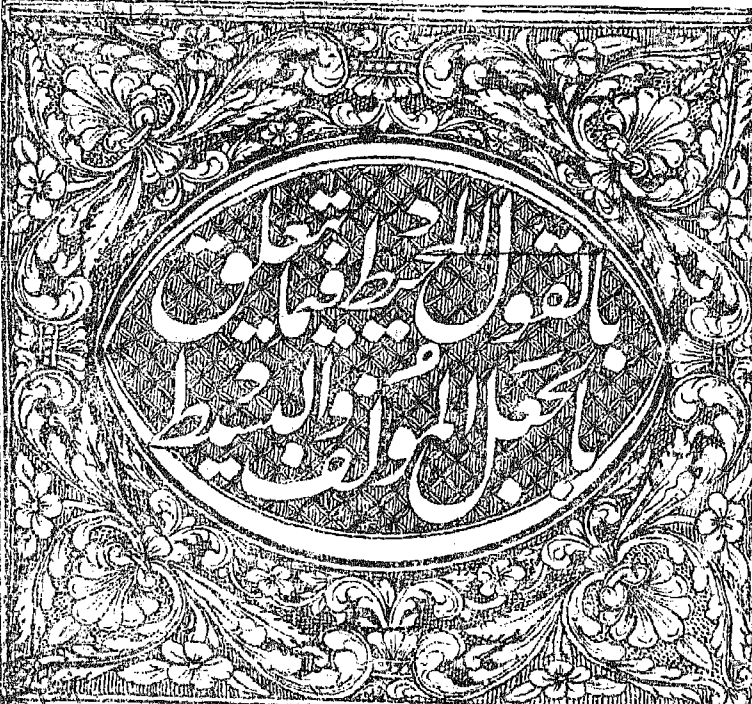 بالقول المحيط فيما يتعلق
بالجعل المؤلف والبسيط